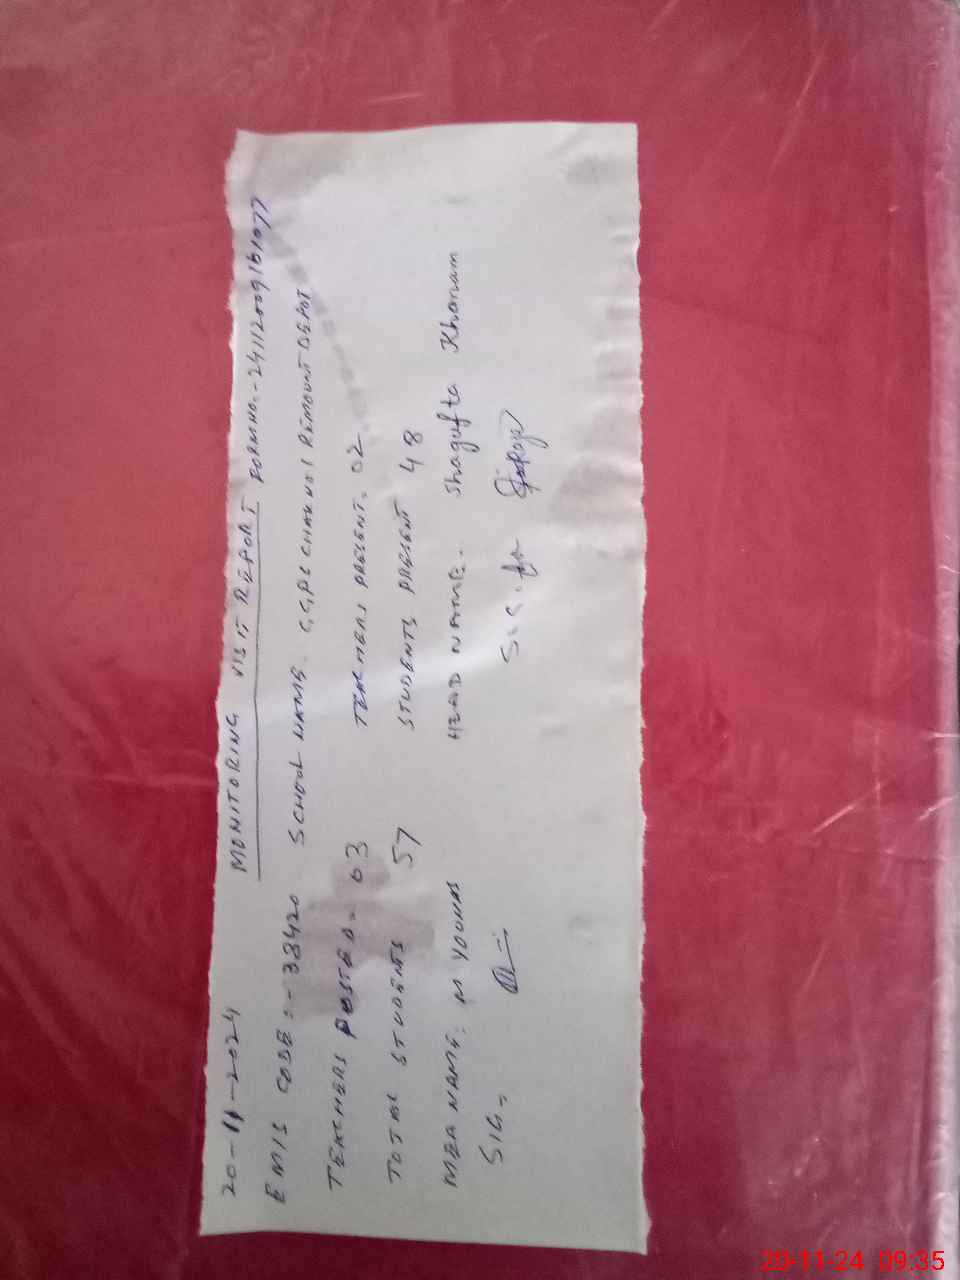 20-11-2024 MONITORING VISIT REPORT FORM NO.-24112009161077
EMIS CODE:-38420 SCHOOL NAME. GGPS CHAK NO 1 REMOUNT DEPOT
TEACHERS POSTED- 03 TEACHERS PRESENT. 02
TOTAL STUDENTS 57 STUDENTS PRESENT 48
MEA NAME: M YOUNAS HEAD NAME. Shagufta Khanam
SIG,
20-11-24 09:35